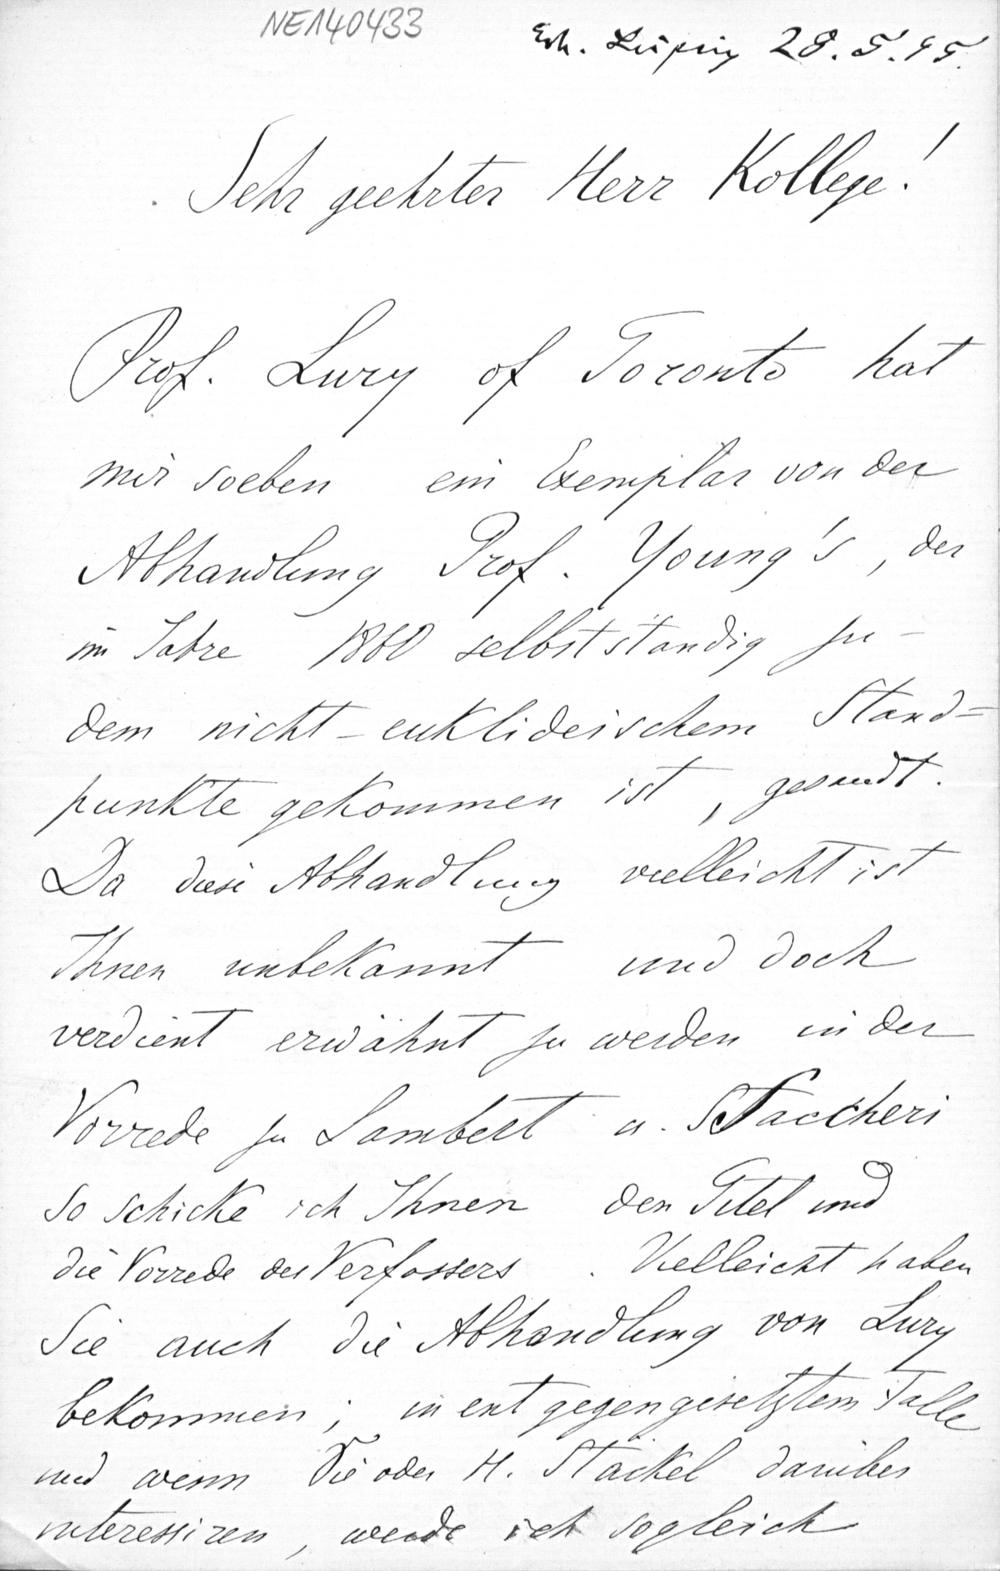 NE140433
Erh. Leipzig 28.5.95.
Sehr geehrter Herr Kollege!
Prof. Lury of Toronto hat
mir soeben ein Exemplar von der
Abhandlung Prof. Young's, der
im Jahre 1860 selbstständig zu
dem nicht-euklideischem Stand-
punkte gekommen ist, gesandt.
Da diese Abhandlung vielleicht ist
Ihnen unbekannt und doch
verdient erwähnt zu werden in der
Vorrede zu Lambert u. Saccheri
so schicke ich Ihnen den Titel und
die Vorrede des Verfassers. Vielleicht haben
Sie auch die Abhandlung von Lury
bekommen; in entgegengesetztem Falle
und wenn Sie oder H. Stäckel darüber
interessiren, werde ich sogleich